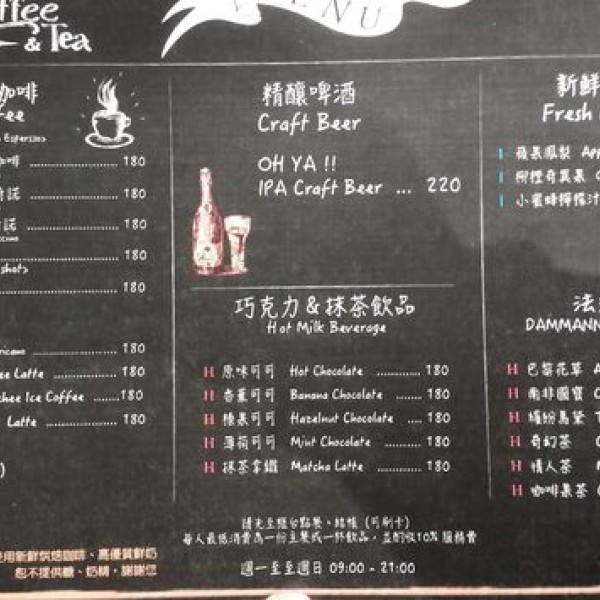 & Tea
MENU
咖啡
Espresso
咖啡 180
諾 180
180
shot>
180
180
Latte 180
Ice Coffee 180
Latte 180
使用新鮮烘焙咖啡、高優質鮮奶
包不提供糖、奶精，謝謝您
精釀啤酒
Craft Beer
OH YA !!
IPA Craft Beer ... 220
巧克力&抹茶飲品
Hot Milk Beverage
H 原味可可 Hot Chocolate 180
H 香蕉可可 Banana Chocolate 180
H 榛果可可 Hazelnut Chocolate 180
H 薄荷可可 Mint Chocolate 180
H 抹茶拿鐵 Matcha Latte 180
請先至櫃台點餐、結帳 (可刷卡)
每人最低消費為一份主餐或一杯飲品，並酌收10% 服務費
週一至至週日 09:00 - 21:00
新鮮
Fresh
I 蘋果鳳梨
I 柳橙奇異果
I 小蜜蜂檸檬汁
DAMMANN
H 巴黎花草
H 南非國寶
H 繽紛馬黛
H 奇幻茶
H 情人茶
H 咖啡果茶